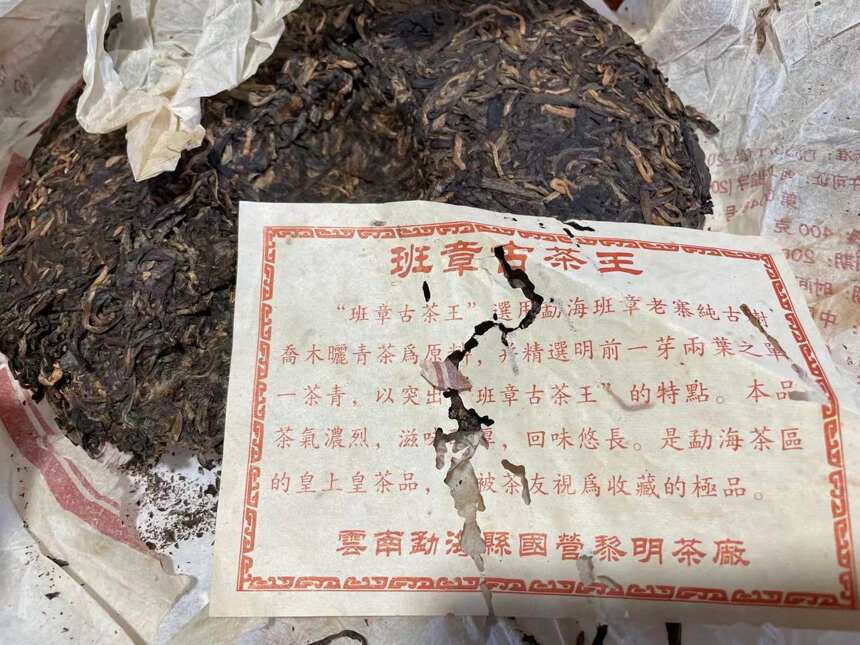 班章古茶王
“班章古茶王”選用勐海班章老寨純古樹
喬木曬青茶爲原料，并精選明前一芽兩葉之單
一茶青，以突出“班章古茶王”的特點。本品
茶氣濃烈，滋味 ，回味悠長。是勐海茶區
的皇上皇茶品， 被茶友視爲收藏的極品。
雲南勐海縣國營黎明茶廠
400 克